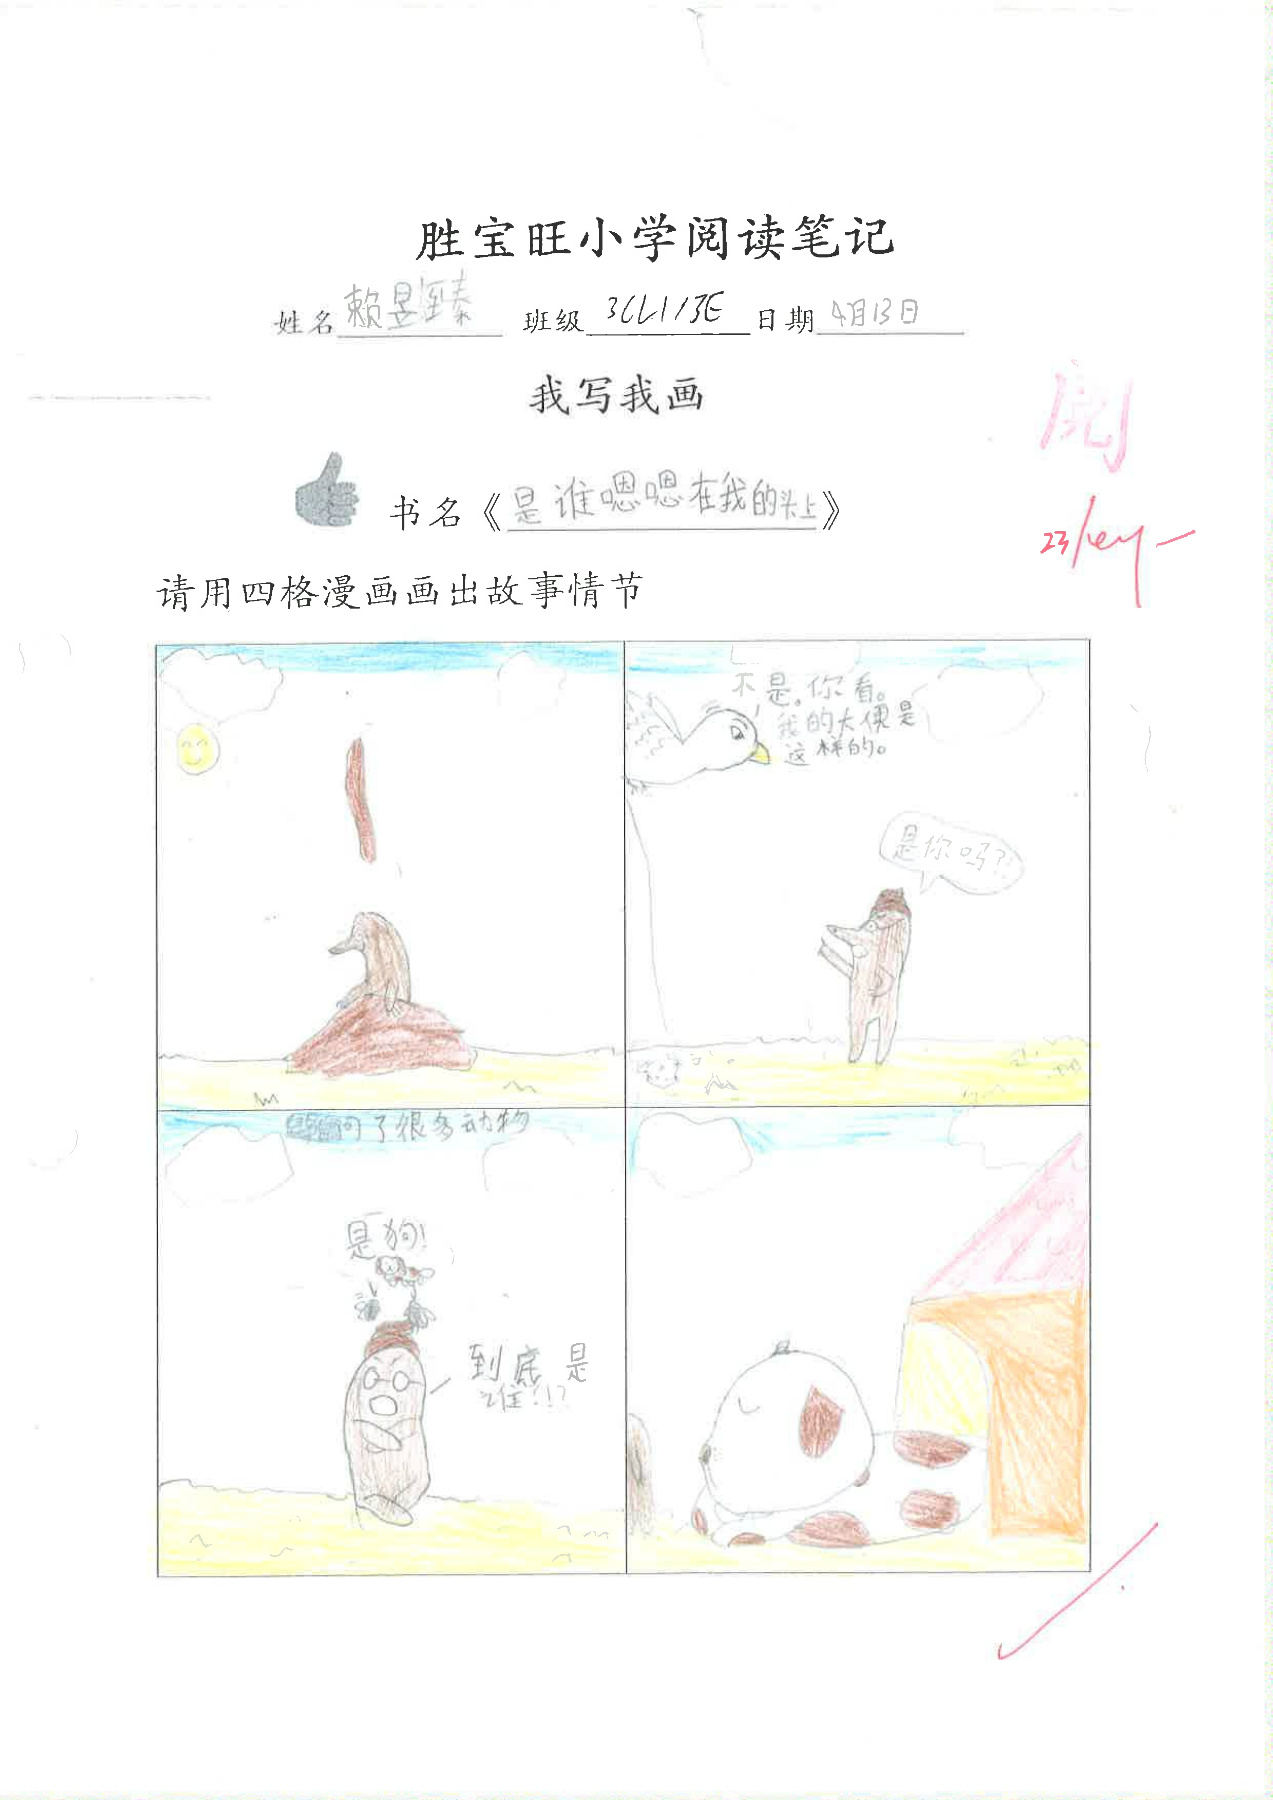 胜宝旺小学阅读笔记
姓名 赖昱臻 班级 3CL1/3E 日期 4月13日
我写我画
阅
书名《是谁嗯嗯在我的头上》
请用四格漫画画出故事情节
不是。你看。
我的大便是
这样的。
是你吗?!
问了很多动物
是狗!
到底是
谁!!?